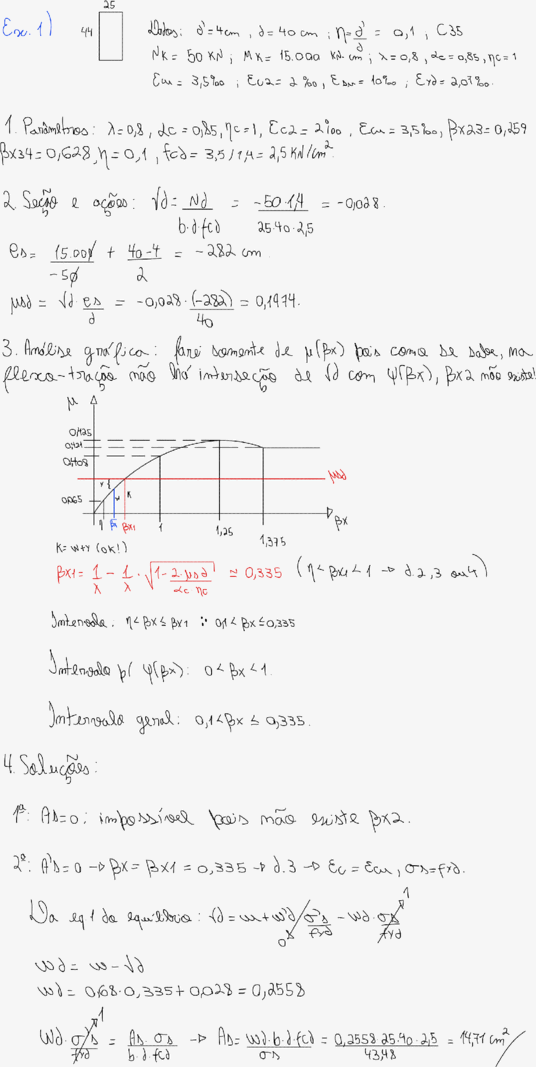 Exc. 1)
25
44
Dados: d'=4cm, d=40cm; η=d'/d = 0,1, C35
Nk=50 KN; Mk=15.000 KN.cm; λ=0,8, αc=0,85, ηc=1
Ecu=3,5‰; Ec2=2‰, Esu=10‰; Eyd=2,07‰.
1. Parâmetros: λ=0,8, αc=0,85, ηc=1, Ec2=2‰, Ecu=3,5‰, βx23=0,259
βx34=0,628, η=0,1, fcd=3,5/1,4=2,5 KN/cm².
2. Seção e ações: √d = Nd/b.d.fcd = -50.1,4/25.40.2,5 = -0,028.
es = 15.000/-50 + 40-4/2 = -282 cm.
μsd = √d.es/d = -0,028.(-282)/40 = 0,1974.
3. Análise gráfica: farei somente de μ(βx) pois como se sabe, na
flexo-tração não há interseção de √d com ψ(βx), βx2 não existe!
μ
0,425
0,421
0,408
μsd
0,065
η
βx1
1
1,25
1,375
βx
K=w+r (ok!)
βx1 = 1/λ - 1/λ . √1-2.μsd/αc ηc ≅ 0,335 (η<βx1<1 → d.2,3 ou 4)
Intervalo: η<βx≤βx1 ∴ 0,1<βx≤0,335
Intervalo p/ ψ(βx): 0<βx<1.
Intervalo geral: 0,1<βx≤0,335.
4. Soluções:
1ª: As=0: impossível pois não existe βx2.
2ª: A's=0 → βx=βx1=0,335 → d.3 → Ec=Ecu, σs=fyd.
Da eq 1 do equilíbrio: √d=w+w'd σ's/fyd - wd.σs/fyd 0 1
wd = w-√d
wd = 0,68.0,335+0,028=0,2558
wd.σs/fyd 1 = As.σs/b.d.fcd → As = wd.b.d.fcd/σs = 0,2558.25.40.2,5/43,48 = 14,71 cm²